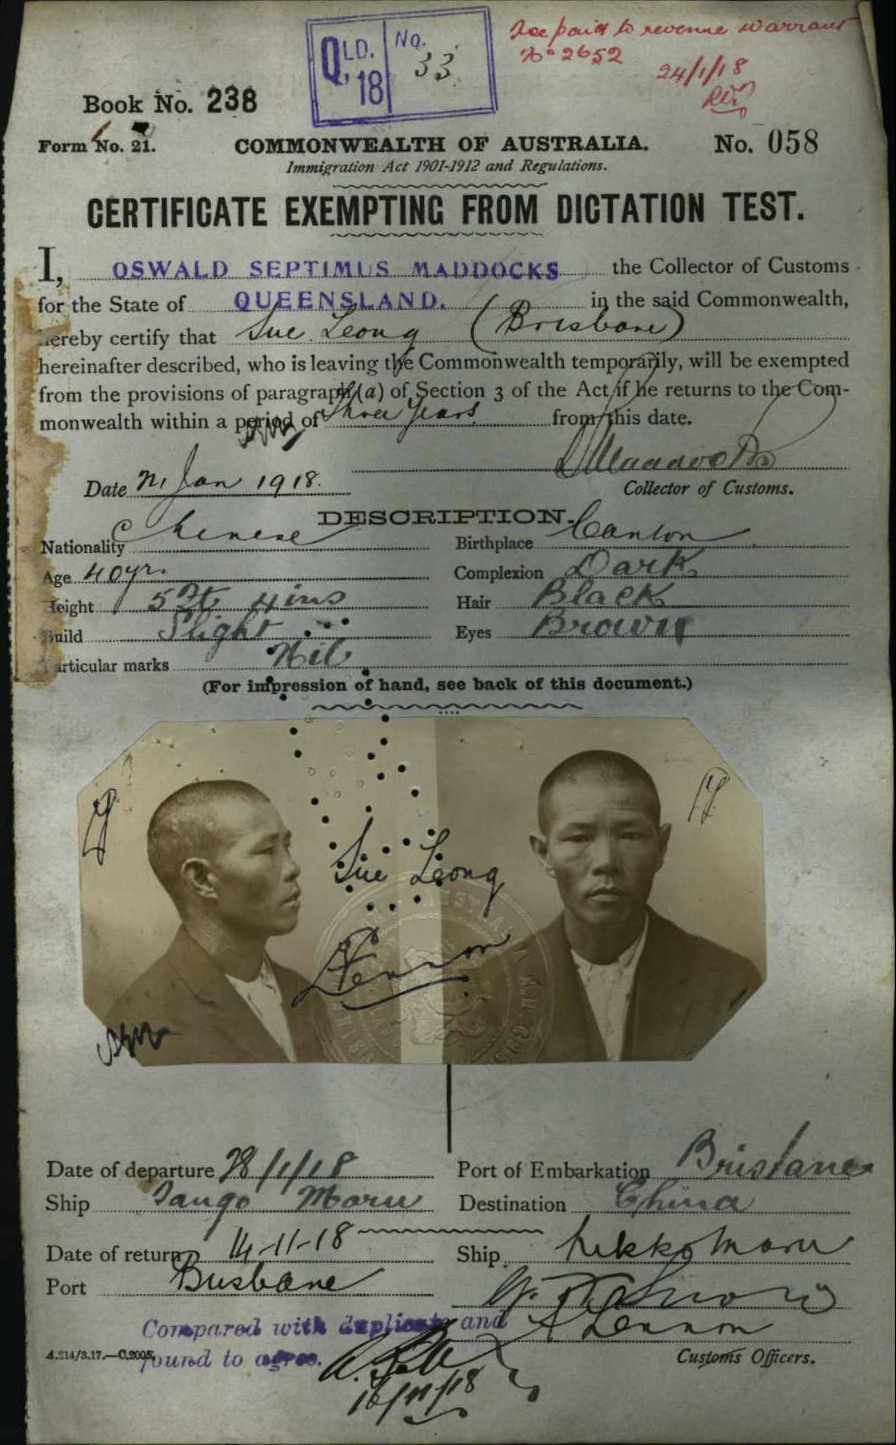 QLD. 18 No. 33
Fee paid to revenue warrant
No 2652
24/1/18
Book No. 238
Form No. 21. COMMONWEALTH OF AUSTRALIA. No. 058
Immigration Act 1901-1912 and Regulations.
CERTIFICATE EXEMPTING FROM DICTATION TEST.
I, OSWALD SEPTIMUS MADDOCKS the Collector of Customs
for the State of QUEENSLAND. in the said Commonwealth,
hereby certify that Sue Leong (Brisbane)
hereinafter described, who is leaving the Commonwealth temporarily, will be exempted
from the provisions of paragraph (a) of Section 3 of the Act if he returns to the Com-
monwealth within a period of Three Years from this date.
Date Jan 1918. Collector of Customs.
DESCRIPTION.
Nationality Chinese Birthplace Canton
Age 40 yr. Complexion Dark
Height 5 ft 4 ins Hair Black
Build Slight Eyes Brown
Particular marks Nil
(For impression of hand, see back of this document.)
Sue Leong
Lennon
Date of departure 28/1/18 Port of Embarkation Brisbane
Ship Tango Maru Destination China
Date of return 14-11-18 Ship Nikko Maru
Port Brisbane
Compared with duplicate and
A Lennon
found to agree.
A.214/3.17.—C.2005. Customs Officers.
16/11/18